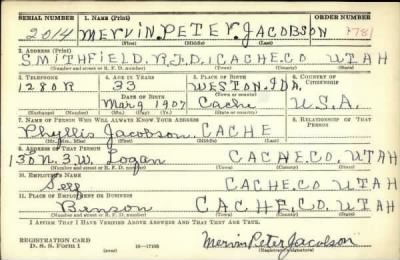 SERIAL NUMBER 1. NAME (Print) ORDER NUMBER
2014 MERVIN PETER JACOBSON 781
(First) (Middle) (Last)
2. ADDRESS (Print)
SMITHFIELD, R.F.D. 1 CACHE, CO UTAH
(Number and street or R. F. D. number) (Town) (County) (State)
3. TELEPHONE 4. AGE IN YEARS 5. PLACE OF BIRTH 6. COUNTRY OF CITIZENSHIP
128 R 33 WESTON, IDA.
DATE OF BIRTH (Town or county)
Mar 9 1907 Cache U.S.A.
(Mo.) (Day) (Yr.) (State or country)
7. NAME OF PERSON WHO WILL ALWAYS KNOW YOUR ADDRESS 8. RELATIONSHIP OF THAT PERSON
Phyllis Jacobson CACHE
(Mr., Mrs., Miss) (First) (Middle) (Last)
9. ADDRESS OF THAT PERSON
130 N. 3 W. Logan CACHE, CO. UTAH
(Number and street or R. F. D. number) (Town) (County) (State)
10. EMPLOYER'S NAME
Self CACHE, CO. UTAH
11. PLACE OF EMPLOYMENT OR BUSINESS
Benson CACHE, CO. UTAH
(Number and street or R. F. D. number) (Town) (County) (State)
I AFFIRM THAT I HAVE VERIFIED ABOVE ANSWERS AND THAT THEY ARE TRUE.
REGISTRATION CARD
D. S. S. Form 1 16—17105 Mervin Peter Jacobson
(Registrant's signature)